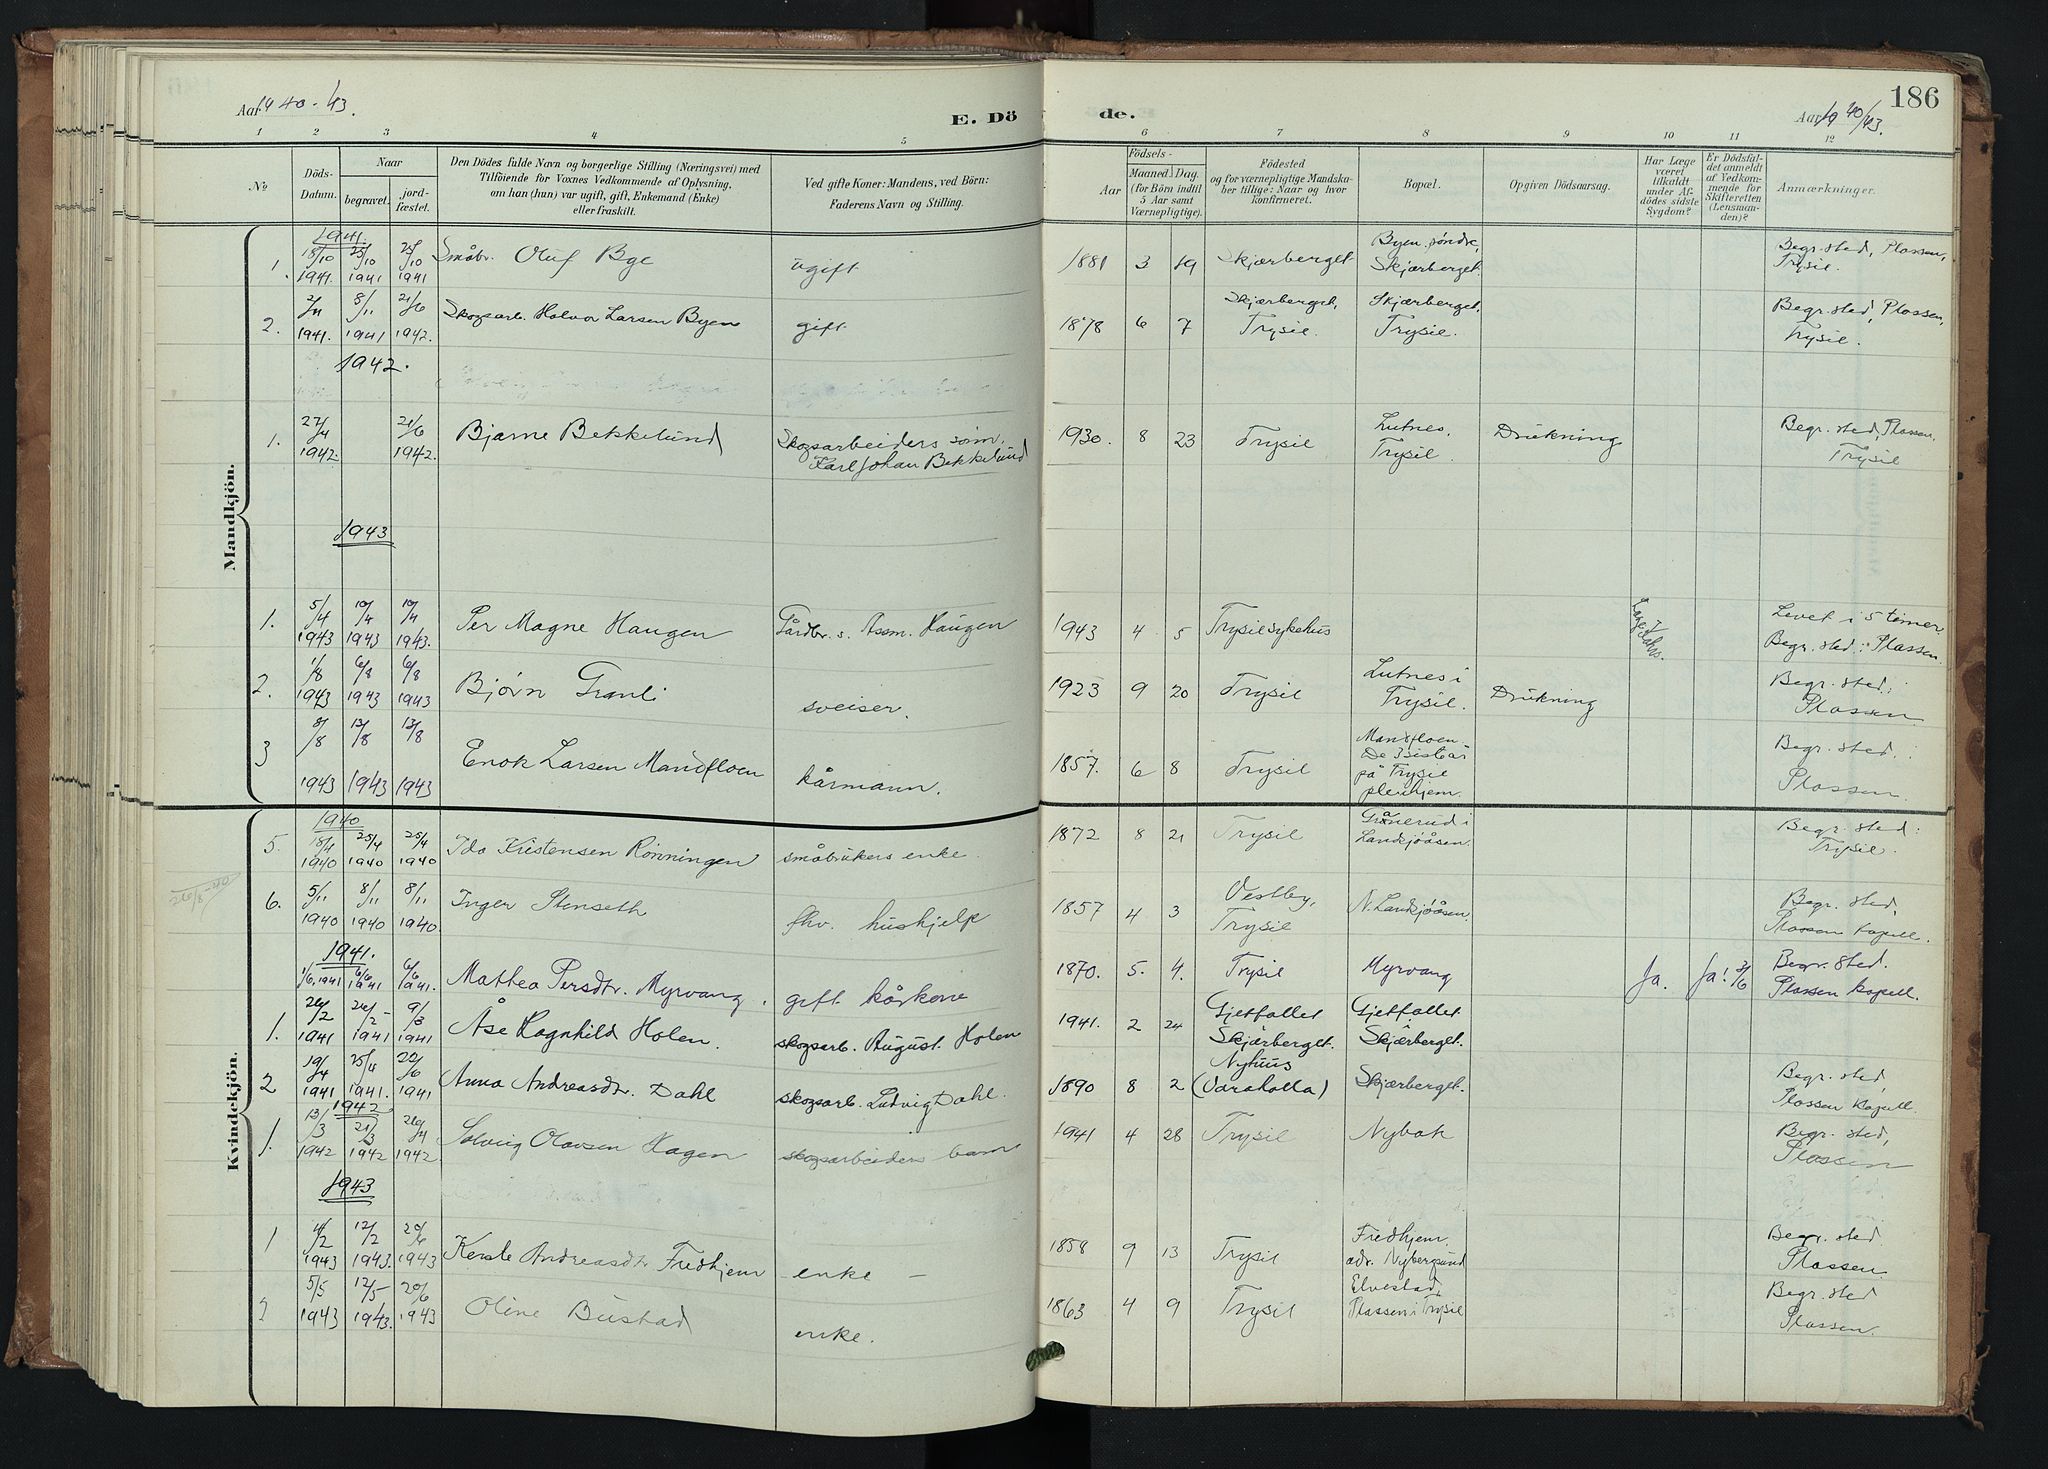 Aar 1940-43.
E. Dö
de.
Aar 1940/43.
186
1 2 3 4 5 6 7 8 9 10 11 12
No
Döds-Datum.
Naar
begravet.
jord-fæstet.
Den Dödes fulde Navn og borgerlige Stilling (Næringsvei) med
Tilföiende for Voxnes Vedkommende af Oplysning,
om han (hun) var ugift, gift, Enkemand (Enke)
eller fraskilt.
Ved gifte Koner: Mandens, ved Börn:
Faderens Navn og Stilling.
Födsels-
Aar
Maaned Dag.
(for Börn indtil
5 Aar samt
Værnepligtige).
Födested
og for værnepligtige Mandska-
ber tillige: Naar og hvor
konfirmeret.
Bopæl.
Opgiven Dödsaarsag.
Har Læge
været
tilkaldt
under Af-
dödes sidste
Sygdom?
Er Dödsfal-
det anmeldt
af Vedkom-
mende for
Skifteretten
(Lensman-
den)?
Anmærkninger.
Mandkjön.
1941.
1. 18/10 1941. 25/10 1941 25/10 1941 Småbr. Oluf Bye ugift. 1881 3 19 Skjærberget Byen söndre, Skjærberget. Begr. sted, Plassen, Trysil.
2. 2/11 1941. 8/11 1941 21/6 1942. Skogsarb. Halvor Larsen Byen gift. 1878 6 7 Skjærberget, Trysil. Skjærberget, Trysil. Begr. sted, Plassen, Trysil.
1942.
1. 27/4 1942. 21/6 1942. Bjarne Bekkelund Skogsarbeiders sønn. Karl Johan Bekkelund 1930. 8 23 Trysil Lutnes, Trysil. Drukning Begr. sted, Plassen, Trysil
1943
1. 5/4 1943 10/4 1943 10/4 1943. Per Magne Haugen Gårdbr. s. Assm. Haugen 1943 4 5 Trysil sykehus Levet i 5 timer. Begr. sted: Plassen.
2. 1/8 1943 6/8 1943 6/8 1943 Bjørn Granli sveiser. 1923 9 20 Trysil Lutnes i Trysil. Drukning Begr. sted: Plassen
3 8/8 1943 13/8 1943 13/8 1943 Enok Larsen Mandfloen kårmann. 1857. 6 8 Trysil Mandfloen. De 3 siste år på Trysil pleiehjem. Begr. sted: Plassen.
Kvindekjön.
1940
5. 18/4 1940 25/4 1940 25/4 1940 Ida Kristensen Rönningen småbrukers enke. 1872 8 21 Trysil Grånerud i Landsjøåsen. Begr. sted: Trysil.
6. 5/11 1940 8/11 1940 8/11 1940. Inger Stenseth fhv. hushjelp 1857 4 3 Vestby, Trysil N. Landsjøåsen. Begr. sted, Plassen kapell.
1941.
1/6. 1941 6/6 1941 6/6 1941. Mathea Persdtr. Myrvang. gift kårkone 1870. 5. 4. Trysil Myrvang Ja. Ja! 3/6 Begr. sted. Plassen kapell.
1. 26/2 1941 26/2 1941 9/3 1941 Åse Ragnhild Holen. skogsarb. August Holen 1941. 2 24 Gjetfallet Skjærberget. Gjetfallet i Skjærberget.
2 19/4 1941 25/4 1941. 22/6 1941 Anna Andreasdtr. Dahl skogsarb. Ludvig Dahl. 1890 8 2 Nyhuus (Varaholla) Skjærberget. Begr. sted, Plassen kapell.
1942
1. 13/3 1942 21/3 1942 26/4 1942. Solveig Olavsen Hagen skogsarbeiders barn 1941 4 28 Trysil Nybak Begr. sted, Plassen
1943
1 4/2 1943 12/2 1943. 20/6 1943 Kerste Andreasdtr Fredhjem enke - 1858 9 13 Trysil Fredhjem. adr. Nybergsund Begr. sted. Plassen.
2 5/5 1943 12/5 1943. 20/6 1943 Oline Bustad enke. 1863 4 9 Trysil Elvestad, Plassen i Trysil Begr. sted Plassen.